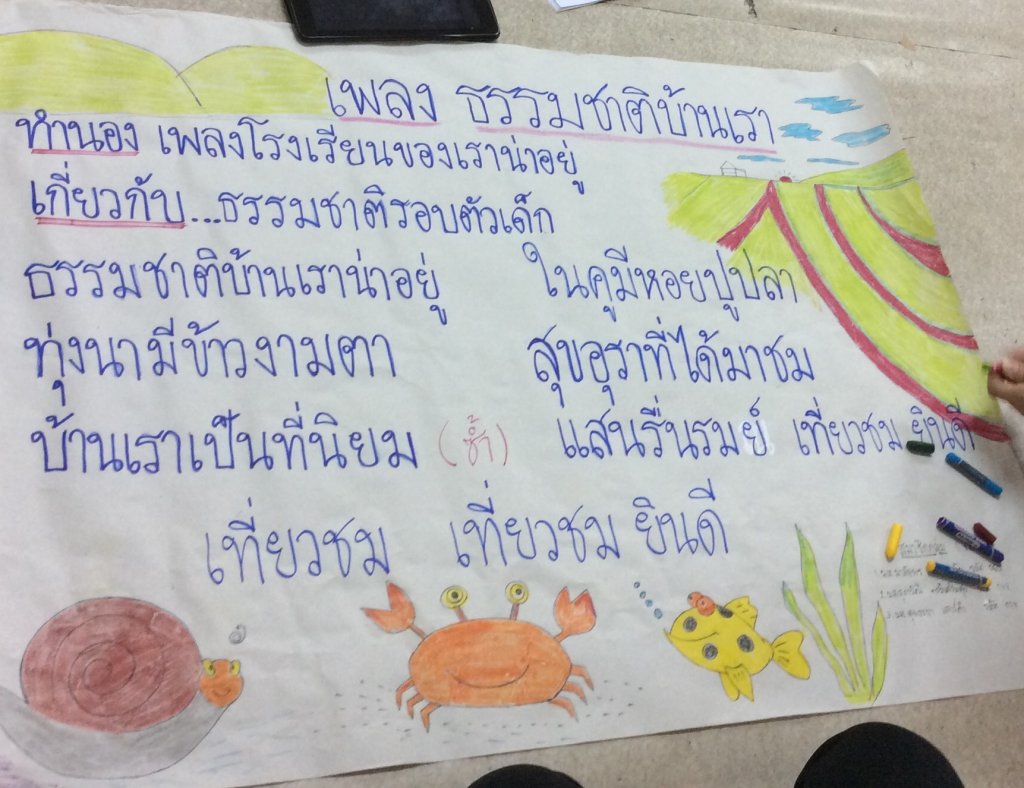 เพลง ธรรมชาติบ้านเรา
ทำนอง เพลงโรงเรียนของเราน่าอยู่
เกี่ยวกับ...ธรรมชาติรอบตัวเด็ก
ธรรมชาติบ้านเราน่าอยู่ ในคูมีหอยปูปลา
ทุ่งนามีข้าวงามตา สุขอุราที่ได้มาชม
บ้านเราเป็นที่นิยม (ซ้ำ) แสนรื่นรมย์ เที่ยวชม ยินดี
เที่ยวชม เที่ยวชม ยินดี